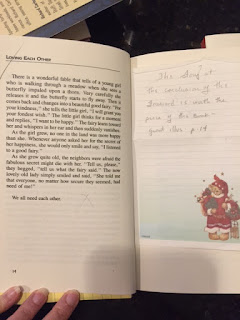 LOVING EACH OTHER
There is a wonderful fable that tells of a young girl
who is walking through a meadow when she sees a
butterfly impaled upon a thorn. Very carefully she
releases it and the butterfly starts to fly away. Then it
comes back and changes into a beautiful good fairy. "For
your kindness," she tells the little girl, "I will grant you
your fondest wish." The little girl thinks for a moment
and replies, "I want to be happy." The fairy leans toward
her and whispers in her ear and then suddenly vanishes.
As the girl grew, no one in the land was more happy
than she. Whenever anyone asked her for the secret of
her happiness, she would only smile and say, "I listened
to a good fairy."
As she grew quite old, the neighbors were afraid the
fabulous secret might die with her. "Tell us, please,"
they begged, "tell us what the fairy said." The now
lovely old lady simply smiled and said, "She told me
that everyone, no matter how secure they seemed, had
need of me!"
We all need each other.
14
The story at
the conclusion of the
foreword is worth
the price of the book.
p. 14